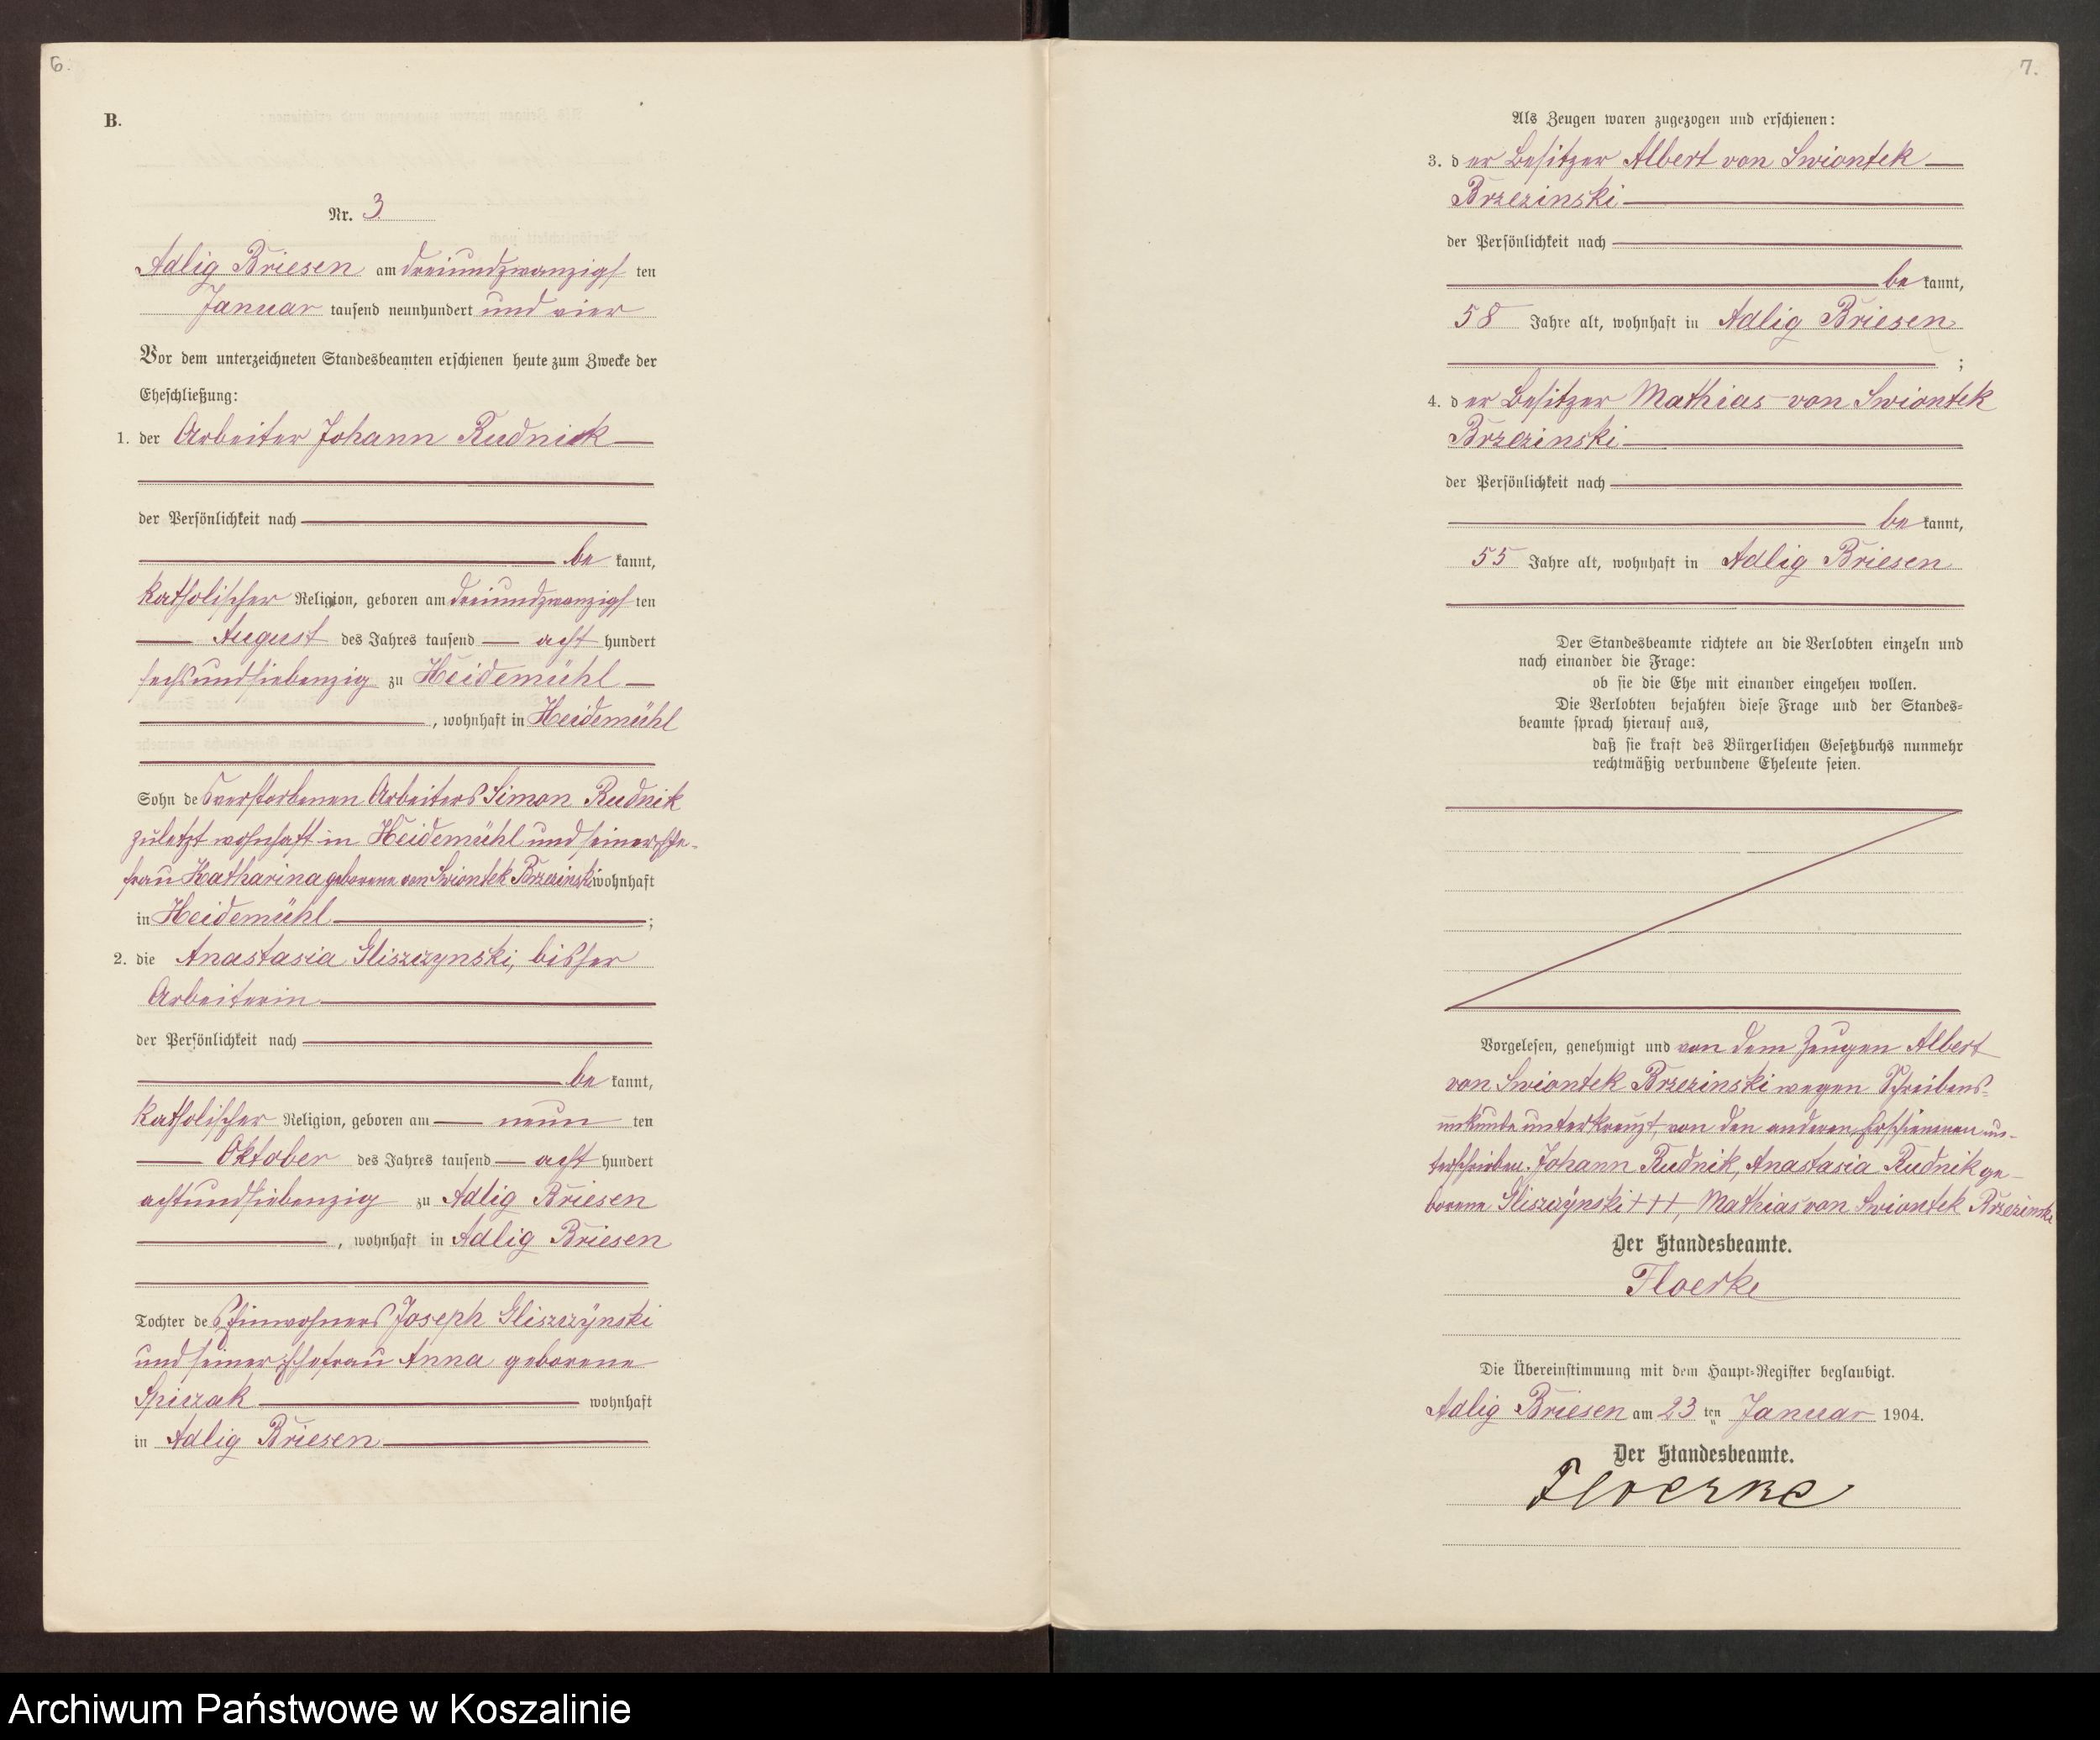 6.
B.
Nr. 3.
Adlig Briesen am dreiundzwanzigs ten
Januar tausend neunhundert und vier
Vor dem unterzeichneten Standesbeamten erschienen heute zum Zwecke der
Eheschließung:
1. der Arbeiter Johann Rudnick
der Persönlichkeit nach
be kannt,
katholischer Religion, geboren am dreiundzwanzigs ten
August des Jahres tausend acht hundert
sechsundsiebenzig zu Heidemühl
, wohnhaft in Heidemühl
Sohn des verstorbenen Arbeiters Simon Rudnik
zuletzt wohnhaft in Heidemühl und seiner Ehe-
frau Katharina geborene von Swiontek Brzezinski wohnhaft
in Heidemühl ;
2. die Anastasia Gliszczynski, bisher
Arbeiterin
der Persönlichkeit nach
be kannt,
katholischer Religion, geboren am neun ten
Oktober des Jahres tausend acht hundert
achtundsiebenzig zu Adlig Briesen
, wohnhaft in Adlig Briesen
Tochter des Einwohners Joseph Gliszczÿnski
und seiner Ehefrau Anna geborene
Spiczak wohnhaft
in Adlig Briesen
7.
Als Zeugen waren zugezogen und erschienen:
3. der Besitzer Albert von Swiontek
Brzezinski
der Persönlichkeit nach
be kannt,
58 Jahre alt, wohnhaft in Adlig Briesen
;
4. der Besitzer Mathias von Swiontek
Brzezinski
der Persönlichkeit nach
be kannt,
55 Jahre alt, wohnhaft in Adlig Briesen
Der Standesbeamte richtete an die Verlobten einzeln und
nach einander die Frage:
ob sie die Ehe mit einander eingehen wollen.
Die Verlobten bejahten diese Frage und der Standes-
beamte sprach hierauf aus,
daß sie kraft des Bürgerlichen Gesetzbuchs nunmehr
rechtmäßig verbundene Eheleute seien.
Vorgelesen, genehmigt und von dem Zeugen Albert
von Swiontek Brzezinski wegen Schreibens-
unkunde unterkreuzt, von den anderen Erschienenen un-
terschrieben. Johann Rudnik, Anastasia Rudnik ge-
borene Gliszczÿnski +++, Mathias von Swiontek Brzezinski
Der Standesbeamte.
Floerke
Die Übereinstimmung mit dem Haupt-Register beglaubigt.
Adlig Briesen am 23 ten Januar 1904.
Der Standesbeamte.
Floerke
Archiwum Państwowe w Koszalinie